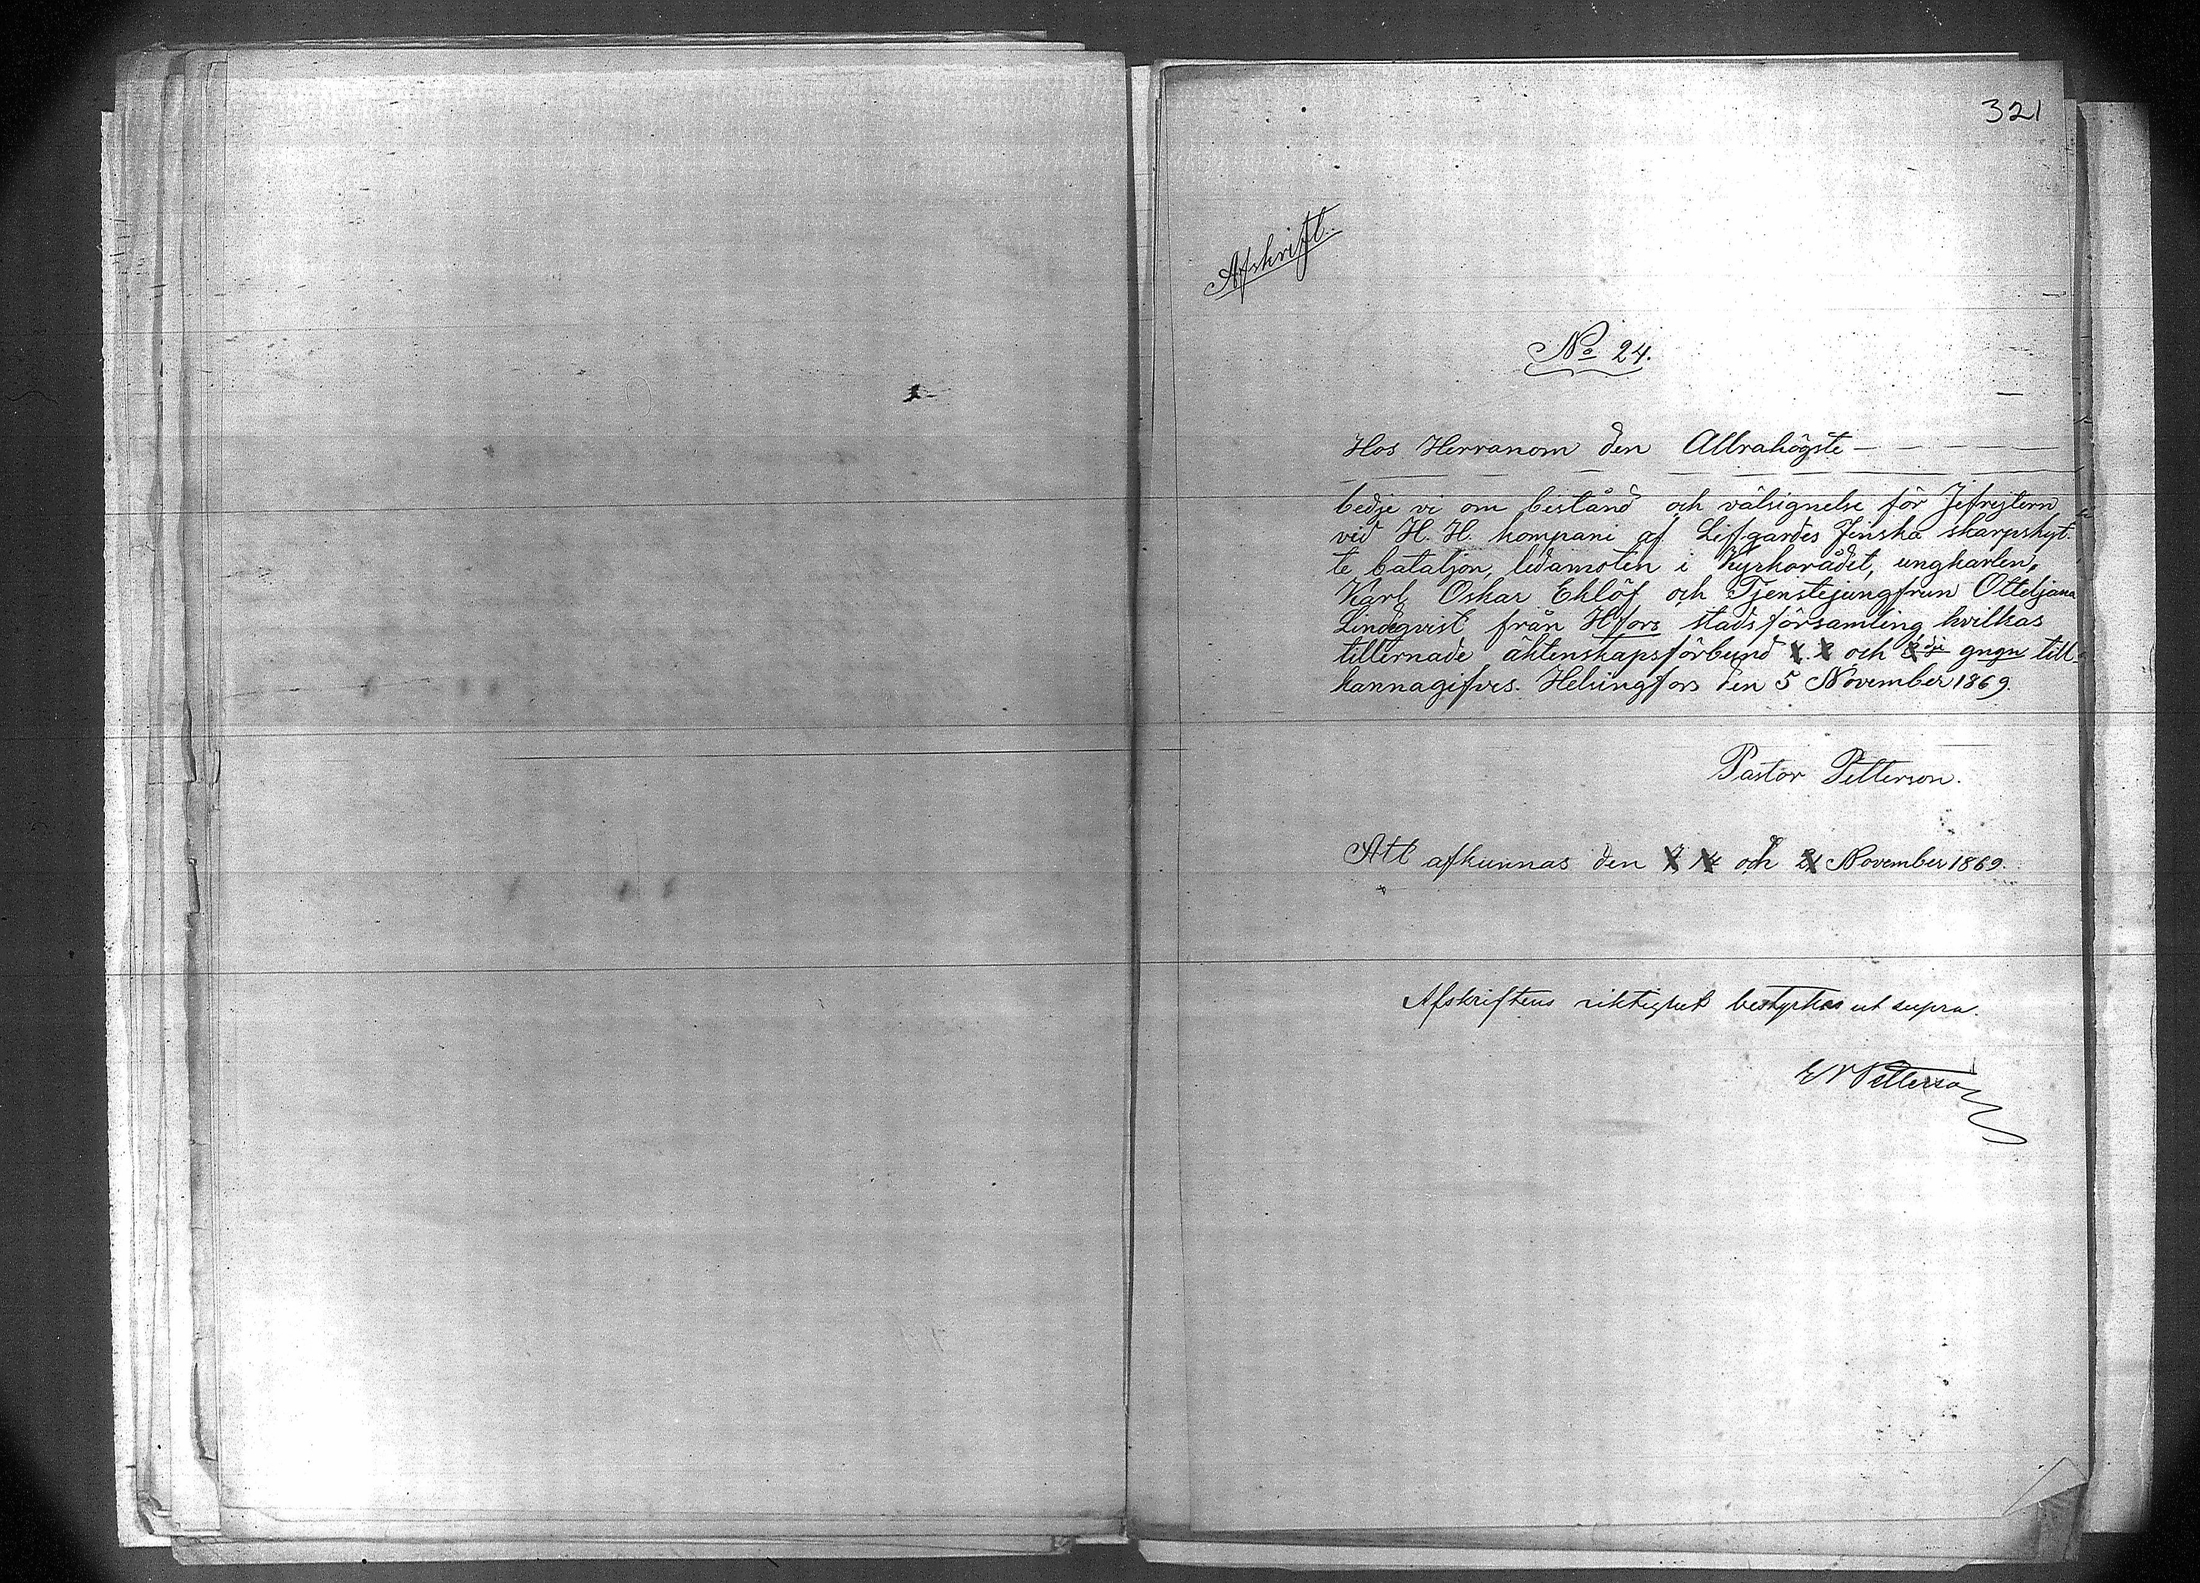 321
Afskrift.
No 24.
Hos Herranom den Allrahögste
bedje vi om bistånd och välsignelse för Jefrejtorn
vid H. H. kompani af Lifgardes Finska skarpskyt-
te bataljon, ledamoten i Kyrkorådet, ungkarlen,
Karl Oskar Eklöf och Tjenstejungfrun Otteljana
Lindqvist från Hfors stadsförsamling hvilkas
tillernade äktenskapsförbund och 3dje gngn till-
kännagifves. Helsingfors den 5 November 1869.
Pastor Petterson.
Att afkunnas den 7 14 och 21 November 1869.
Afskriftens riktighet bestyrkas ut supra.
Petterson